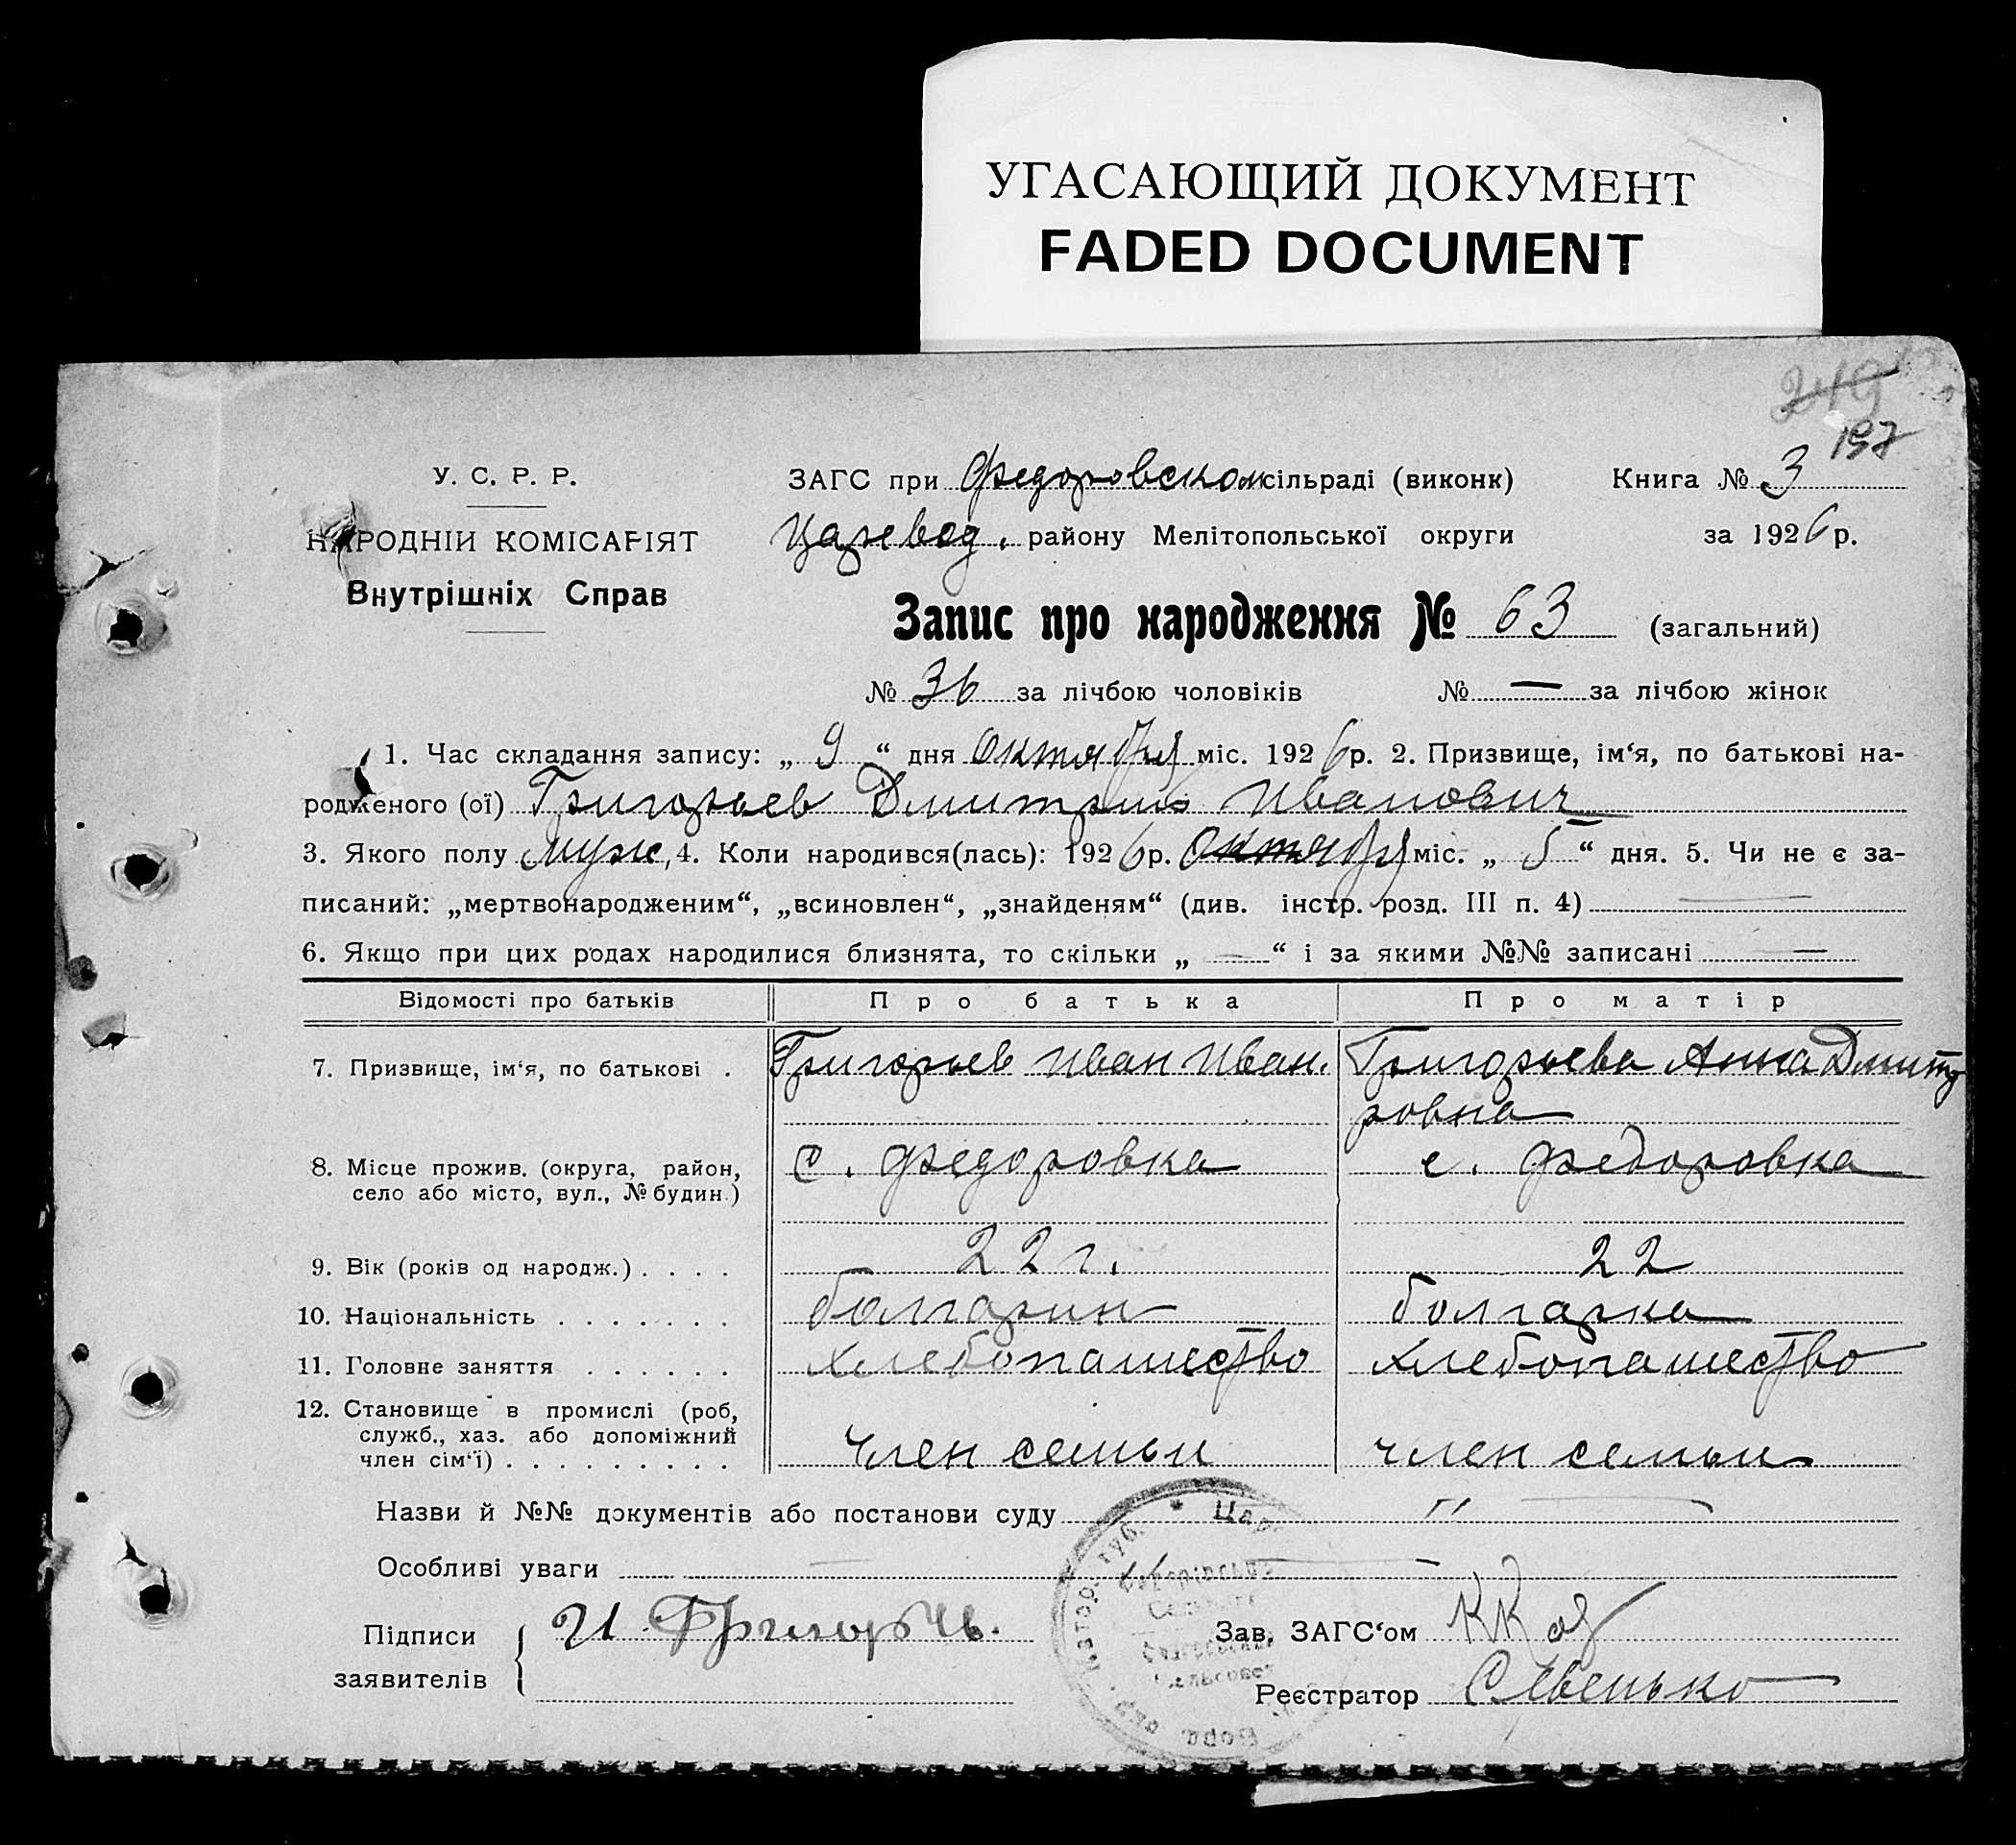 УГАСАЮЩИЙ ДОКУМЕНТ
FADED DOCUMENT
249
197
У. С. Р. Р.
НАРОДНІЙ КОМІСАРІЯТ
Внутрішніх Справ
ЗАГС при Федоровском сільраді (виконк)
Царевод. району Мелітопольської округи
Книга № 3
за 1926 р.
Запис про народження № 63 (загальний)
№ 36 за лічбою чоловіків № — за лічбою жінок
1. Час складання запису: „ 9 “ дня октября міс. 1926 р. 2. Призвище, ім‘я, по батькові на-
родженого (ої) Григорьев Дмитрий Иванович
3. Якого полу муж, 4. Коли народився(лась): 1926 р. октября міс. „ 5 “ дня. 5. Чи не є за-
писаний: „мертвонародженим“, „всиновлен“, „знайденям“ (див. інстр. розд. III п. 4) —
6. Якщо при цих родах народилися близнята, то скільки „ — “ і за якими №№ записані —
Відомості про батьків Про батька Про матір
7. Призвище, ім‘я, по батькові . Григорьев Иван Иван. Григорьева Анна Дмит
ровна
8. Місце прожив. (округа, район, с. Федоровка с. Федоровка
село або місто, вул., № будин.)
9. Вік (років од народж.) . . . . 22 г. 22
10. Національність . . . . . . . болгарин болгарка
11. Головне заняття . . . . . . хлебопашество хлебопашество
12. Становище в промислі (роб,
служб., хаз. або допоміжний
член сім‘ї) . . . . . . . . . член семьи член семьи
Назви й №№ документів або постанови суду „ —
Особливі уваги — —
Підписи
заявителів
И. Григорьев.
Зав. ЗАГС‘ом
Реєстратор